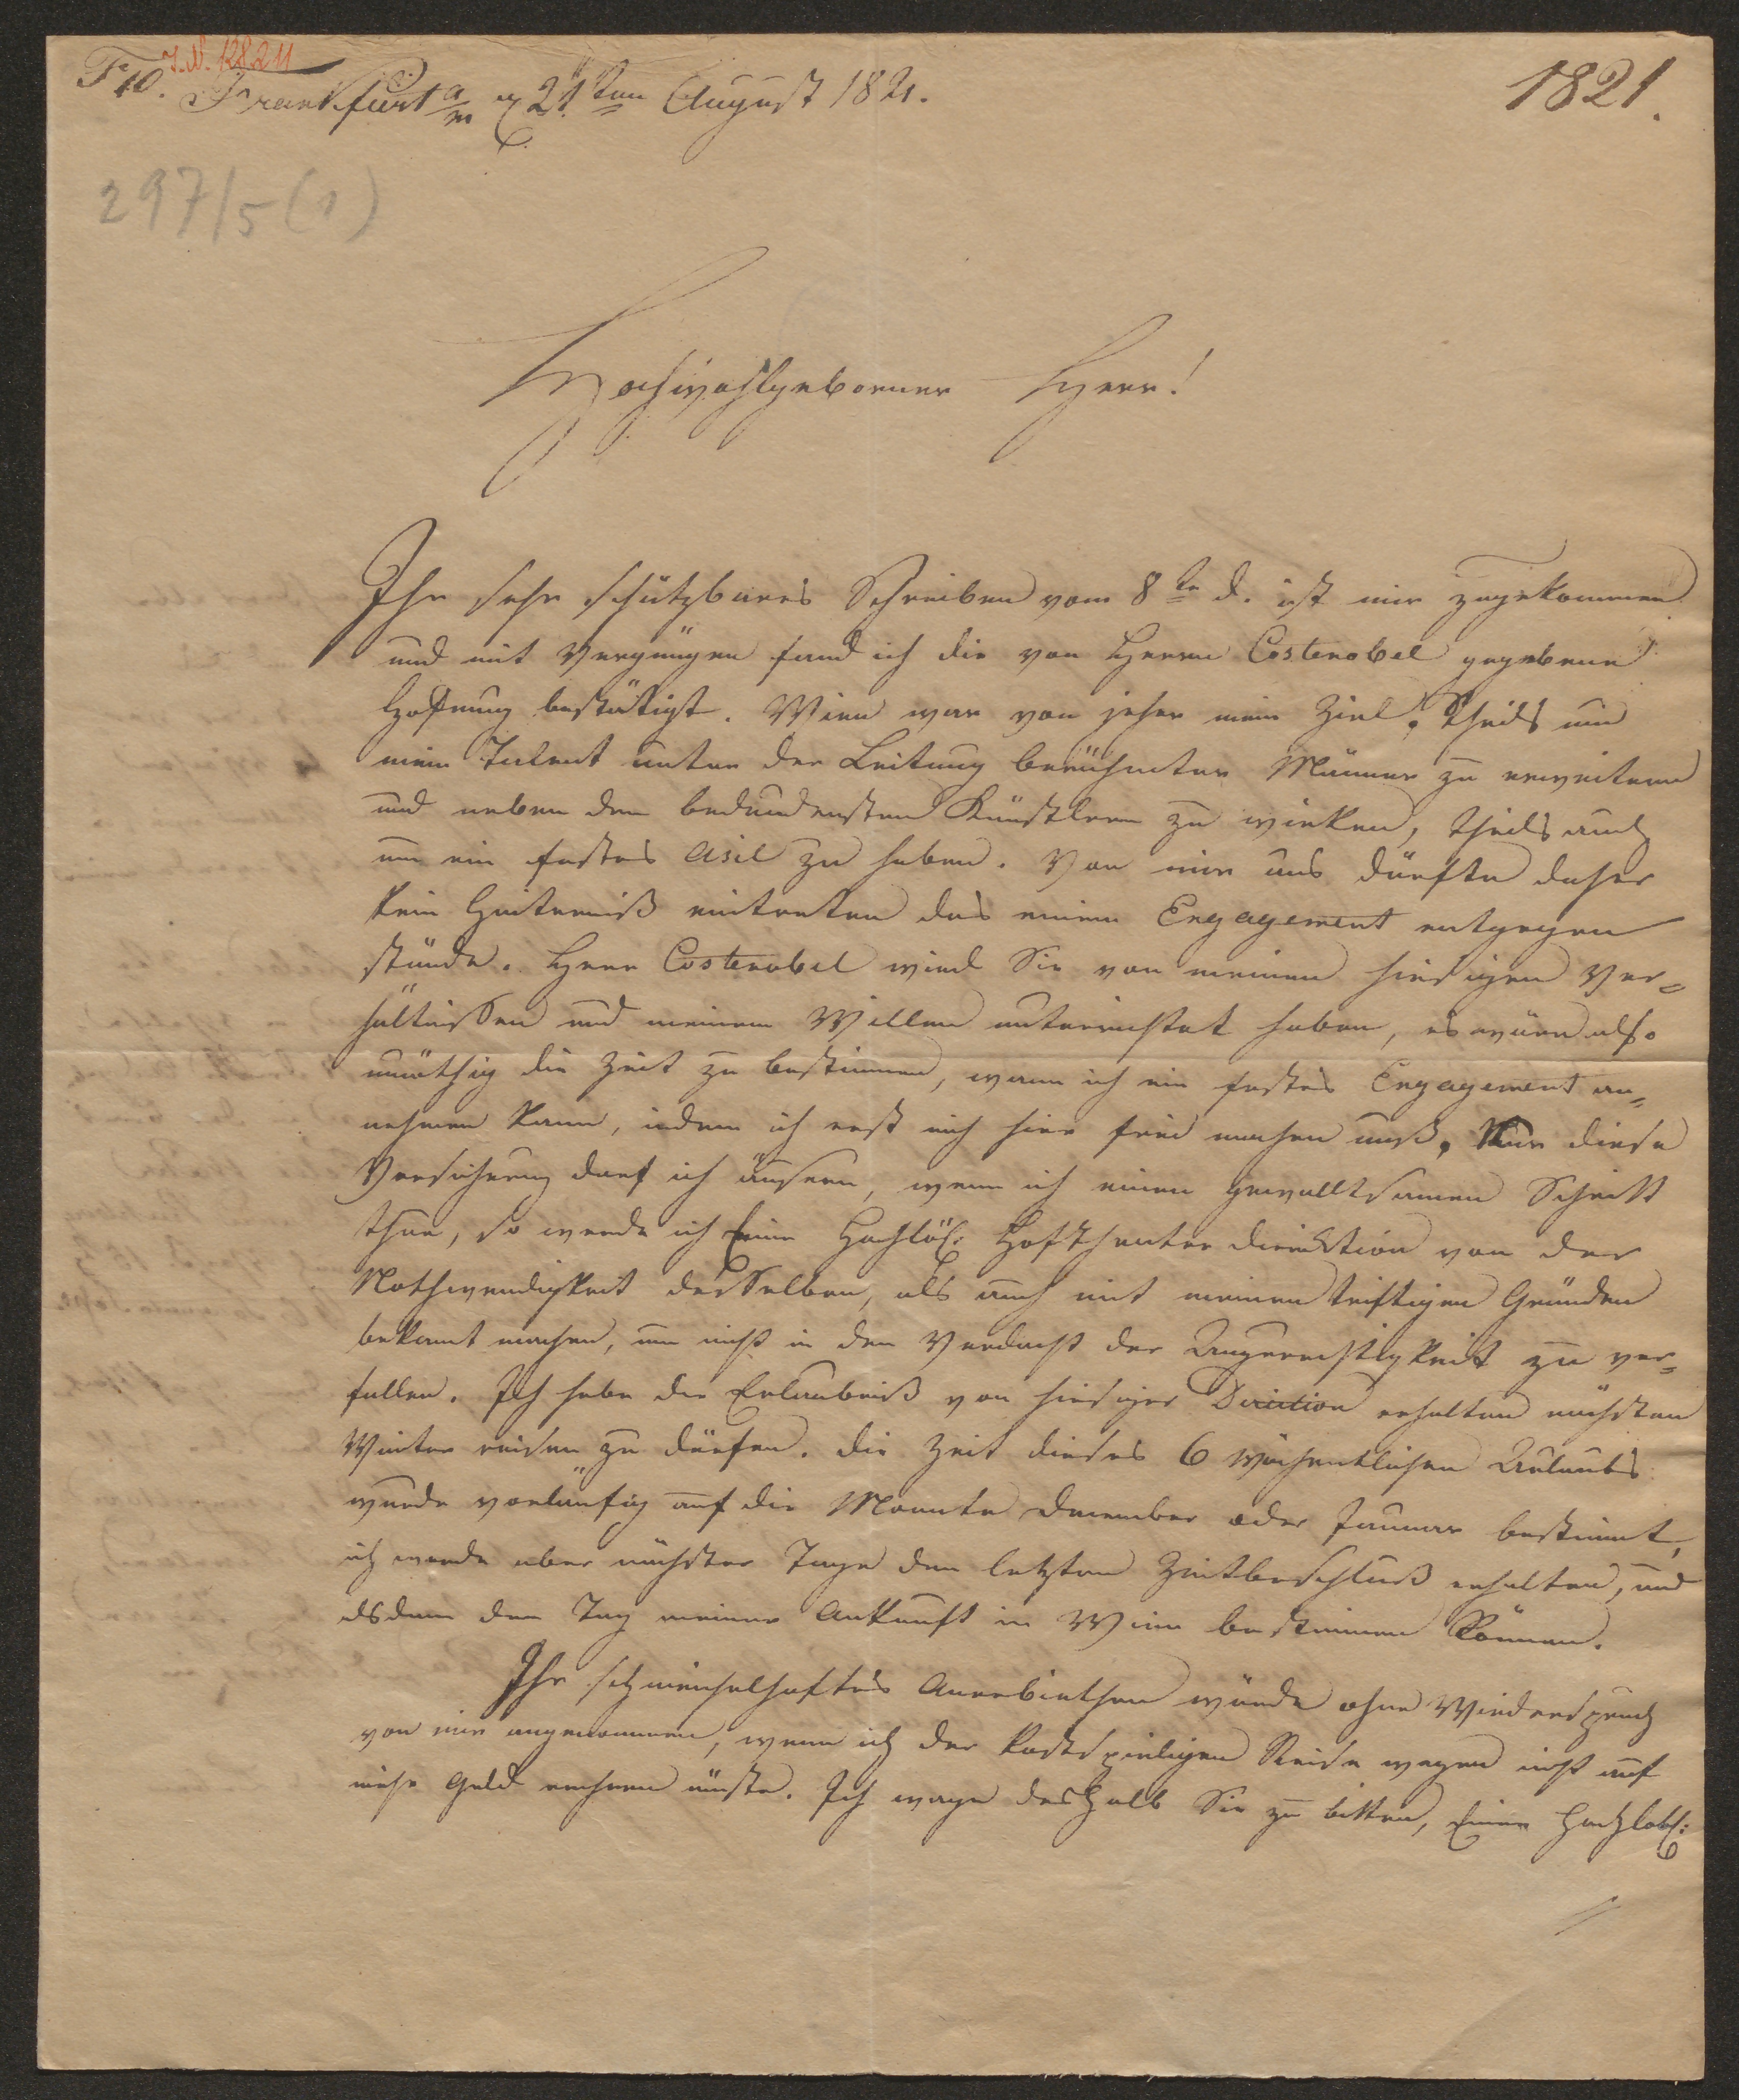 J.N. 12824
F10. Frankfurt a/m d 21ten August 1821.
1821.
297/5 (1)
Hochwohlgeborner Herr!
Ihr sehr schätzbares Schreiben vom 8te d. ist mir zugekommen
und mit Vergnügen fand ich die von Herrn Costenobel gegebene
Hofnung bestätigt. Wien war von jeher mein Ziel; theils um
mein Talent unter der Leitung berühmter Männer zu erweitern
und neben den bedeudensten Künstlern zu wirken, theils auch
um ein festes Asil zu haben. Von mir aus dürfte daher
kein Hinterniß eintreten das einem Engagement entgegen
stünde. Herr Costenobel wird Sie von meinen hiesigen Ver-
hältnissen und meinem Willen unterrichtet haben, es wäre also
unnöthig die Zeit zu bestimmen, wann ich ein festes Engagement an-
nehmen kann, indem ich erst mich hier frei machen muß. Nur diese
Versichrung darf ich äußern, wenn ich einen gewalltsamen Schritt
thue, so werde ich Eine Hochlöb: Hofftheater direcktion von der
Nothwendigkeit desselben, als auch mit meinen triftigen Gründen
bekannt machen, um nicht in den Verdacht der Ungerechtigkeit zu ver-
fallen. Ich habe die Erlaubniß von hiesiger Direction erhalten nächsten
Winter reisen zu dürfen. die Zeit dieses 6 wöchentlichen Urlaubs
wurde vorläufig auf die Monate December oder Januar bestimmt,
ich werde aber nächster Tage den letzten Zeitbeschluß erhalten, und
alsdann den Tag meiner Ankunft in Wien bestimmen können.
Ihr schmeichelhaftes Anerbiethen würde ohne Wiederspruch
von mir angenommen, wenn ich der kostspieligen Reise wegen nicht auf
mehr Geld rechnen müste. Ich wage deshalb Sie zu bitten, Einer Hochlobl: